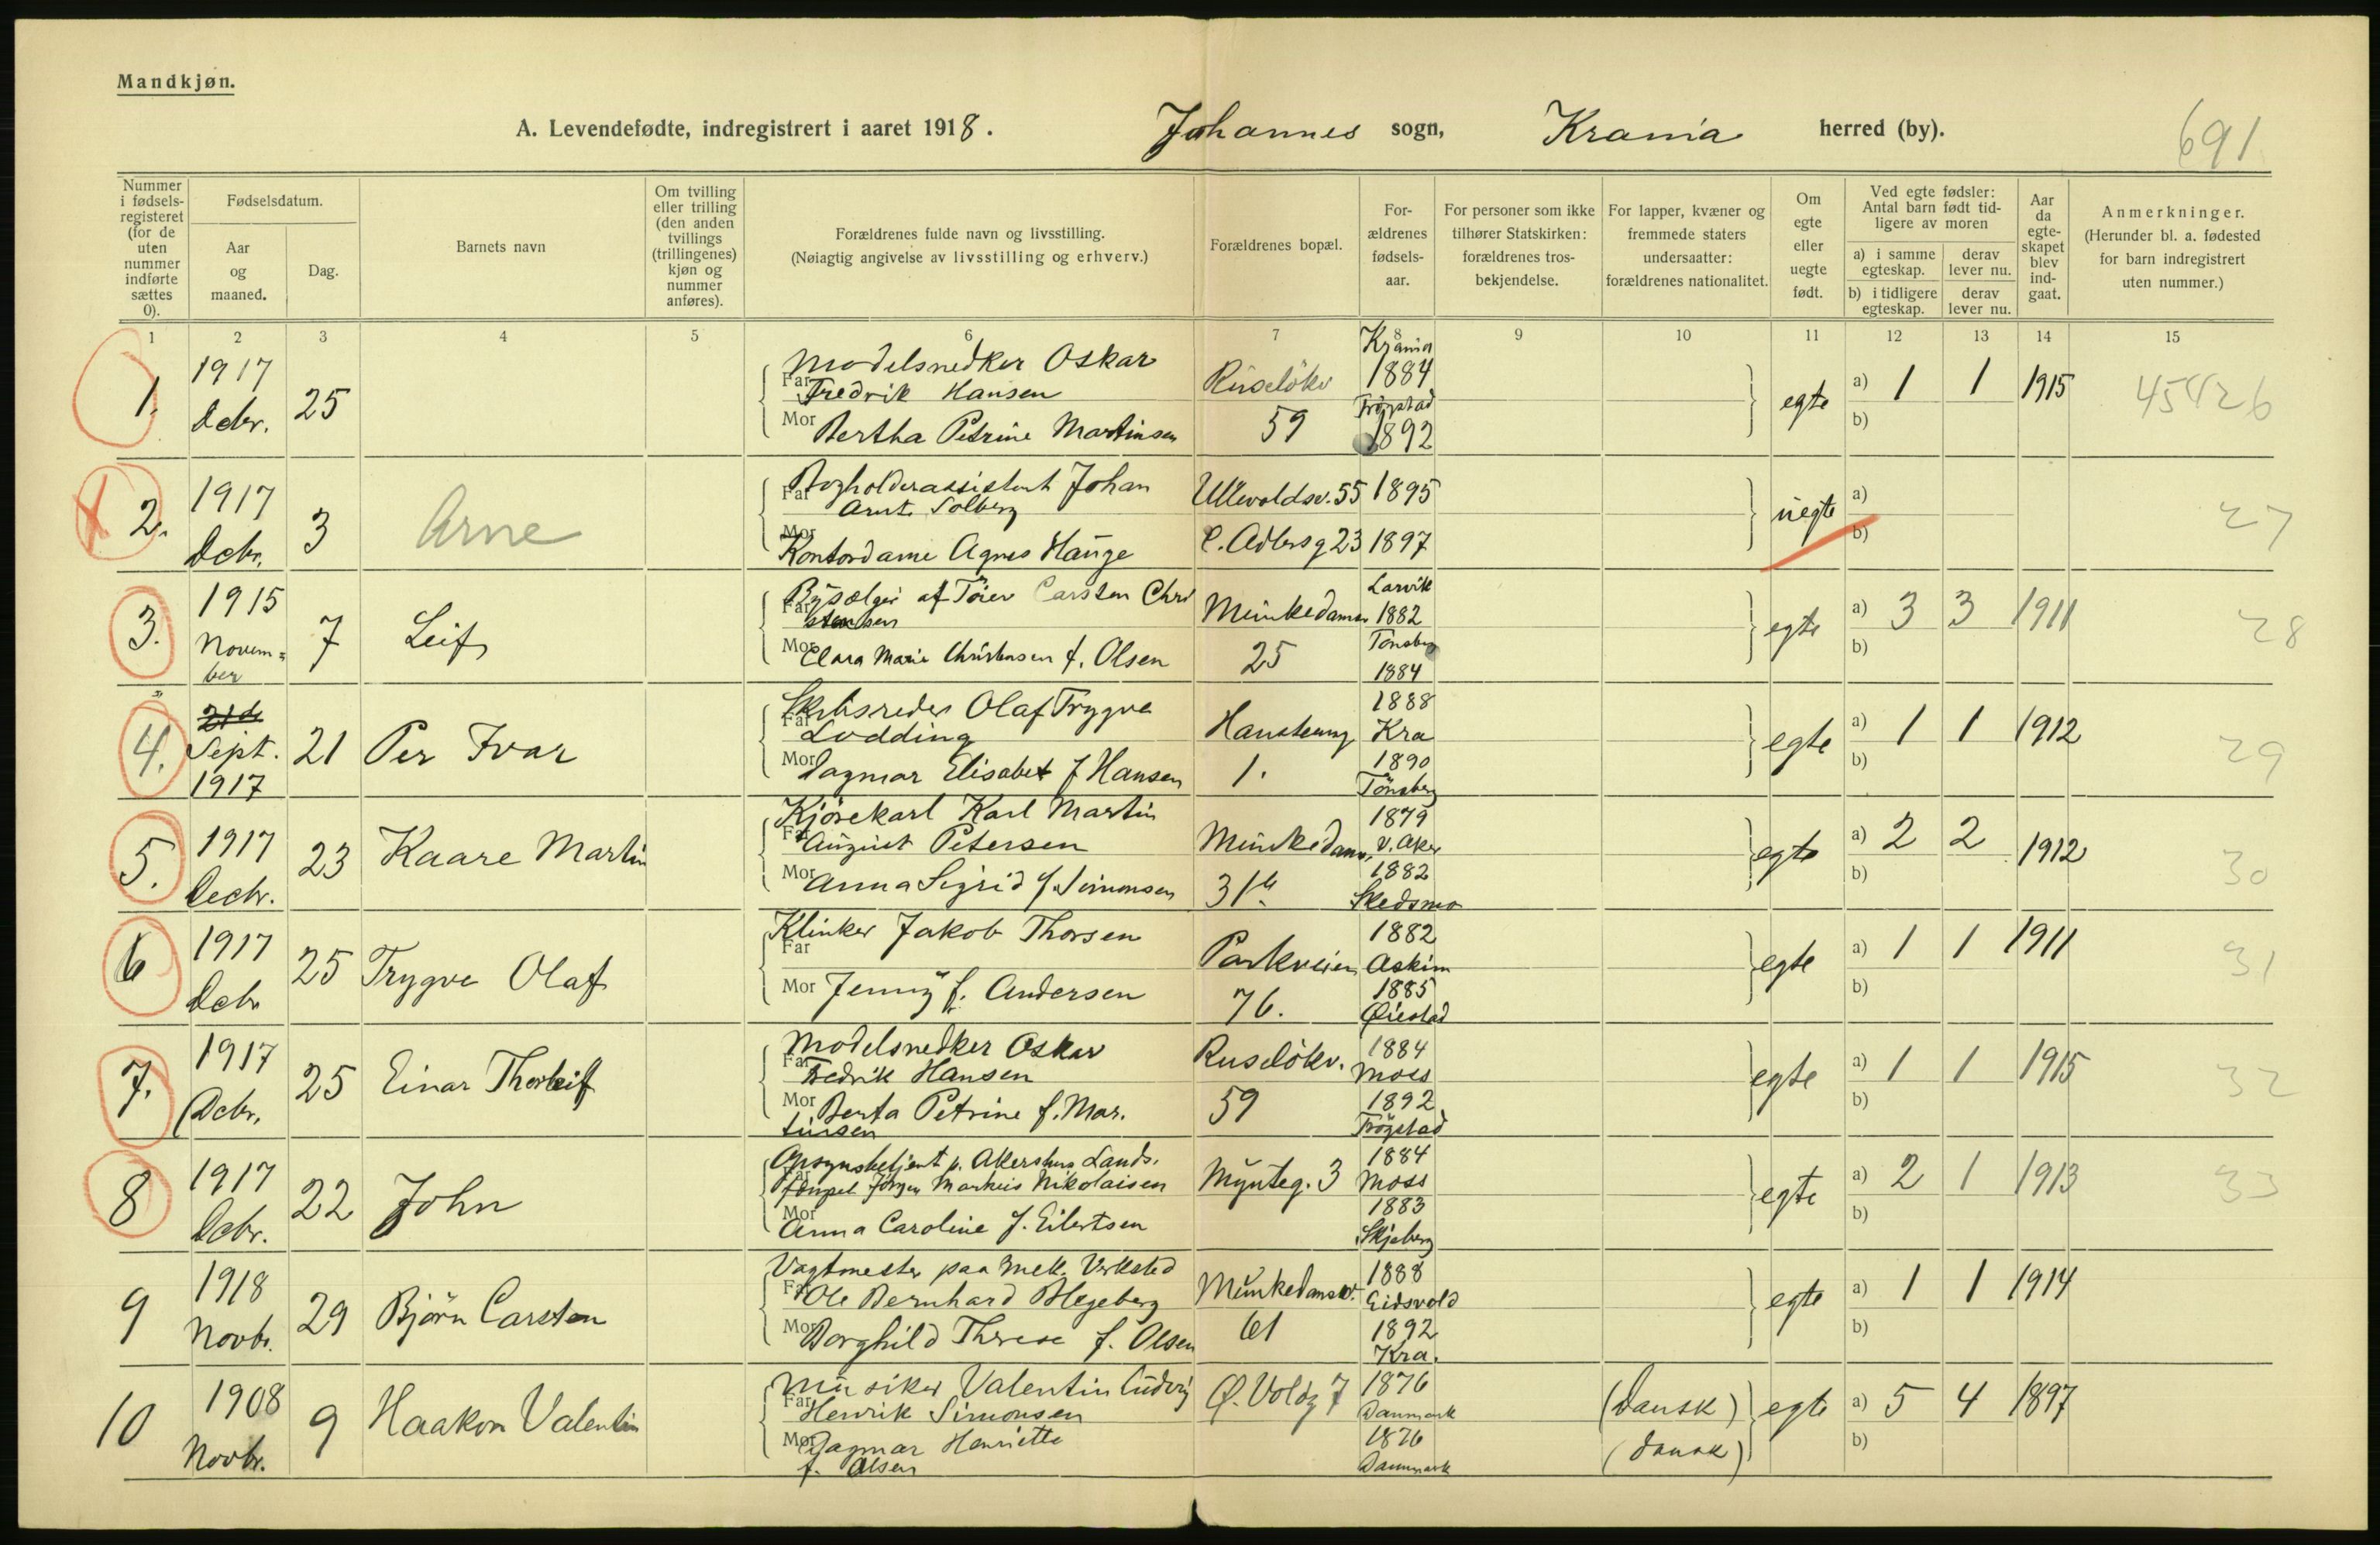 Mandkjøn.
A. Levendefødte, indregistrert i aaret 1918. Johannes sogn, Krania herred (by). 691
Nummer i fødsels-registeret (for de uten nummer indførte sættes 0).
Fødselsdatum.
Aar og maaned.
Dag.
Barnets navn
Om tvilling eller trilling (den anden tvillings (trillingenes) kjøn og nummer anføres).
Forældrenes fulde navn og livsstilling.
(Nøiagtig angivelse av livsstilling og erhverv.)
Forældrenes bopæl.
For-ældrenes fødsels-aar.
For personer som ikke tilhører Statskirken: forældrenes tros-bekjendelse.
For lapper, kvæner og fremmede staters undersaatter: forældrenes nationalitet.
Om egte eller uegte født.
Ved egte fødsler: Antal barn født tid-ligere av moren
a) i samme egteskap. derav lever nu.
b) i tidligere egteskap. derav lever nu.
Aar da egte-skapet blev ind-gaat.
Anmerkninger.
(Herunder bl. a. fødested for barn indregistrert uten nummer.)
1 2 3 4 5 6 7 8 9 10 11 12 13 14 15
1. 1917 Dcbr. 25
Far Modelsnedker Oskar Fredrik Hansen
Mor Bertha Petrine Martinsen
Ruseløkv 59
Krania 1884
Trøgstad 1892
egte a) 1 1 1915 45426
b)
2. 1917 Dcbr. 3 Arne
Far Bogholderassistent Johan Arnt Solberg
Mor Kontordame Agnes Hauge
Ullevoldsv. 55 1895
C. Adlersg 23 1897
uegte a)
b)
27
3. 1915 Novem=ber 7 Leif
Far Bysælger af Töier Carsten Christensen
Mor Clara Marie Christensen f. Olsen
Munkedamsv 25
Larvik 1882
Tönsberg 1884
egte a) 3 3 1911 28
b)
4. Sept. 1917 21 Per Ivar
Far Skibsreder Olaf Trygve Lodding
Mor Dagmar Elisabet f Hansen
Hansteensg 1.
1888 Kra
1890 Tönsberg
egte a) 1 1 1912 29
b)
5. 1917 Decbr. 23 Kaare Martin
Far Kjörekarl Karl Martin August Petersen
Mor Anna Sigrid f. Simonsen
Munkedamsv. 31b.
1879 V. Aker
1882 Skedsmo
egte a) 2 2 1912 30
b)
6 1917 Dcbr 25 Trygve Olaf
Far Klinker Jakob Thorsen
Mor Jenny f. Andersen
Parkveien 76.
1882 Askim
1885 Øiestad
egte a) 1 1 1911 31
b)
7. 1917 Dcbr. 25 Einar Thorleif
Far Modelsnedker Oskar Fredrik Hansen
Mor Berta Petrine f. Mar.tinsen
Ruseløkv. 59
1884 Moss
1892 Trögstad
egte a) 1 1 1915 32
b)
8 1917 Dcbr. 22 John
Far Opsynsbetjent p. Akershus Lands.fængsel Jörgen Markus Nikolaisen
Mor Anna Caroline f. Eilertsen
Mynteg. 3
1884 Moss
1883 Skjeberg
egte a) 2 1 1913 33
b)
9 1918 Novbr. 29 Björn Carsten
Far Vagtmester paa Mek. Verksted Ole Bernhard Blegeberg
Mor Borghild Therese f. Olsen
Munkedamsv. 61
1888 Eidsvold
1892 Kra.
egte a) 1 1 1914
b)
10 1908 Novbr. 9 Haakon Valentin
Far Musiker Valentin Ludvig Henrik Simonsen
Mor Dagmar Henriette f. Olsen
Ø. Voldg 7
1876 Danmark
1876 Danmark
(Dansk)
(dansk)
egte a) 5 4 1897
b)